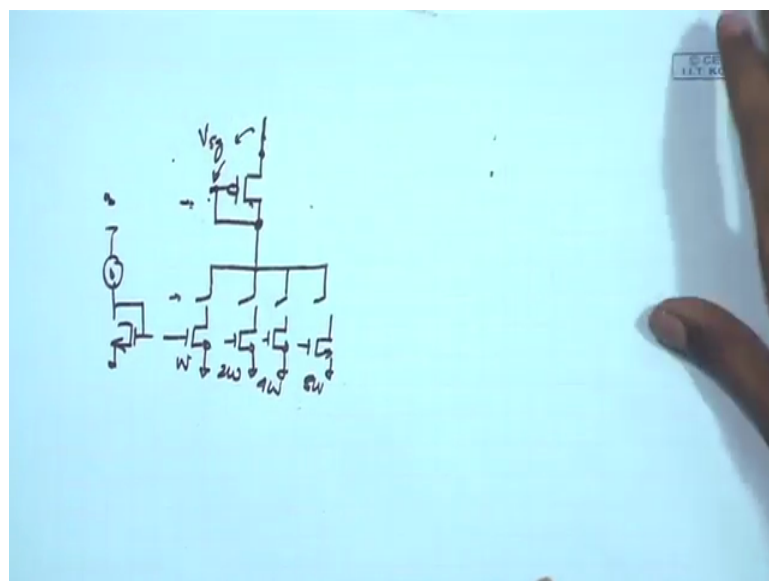 © CE
I.I.T. KG
Vsg
W 2W 4W 8W